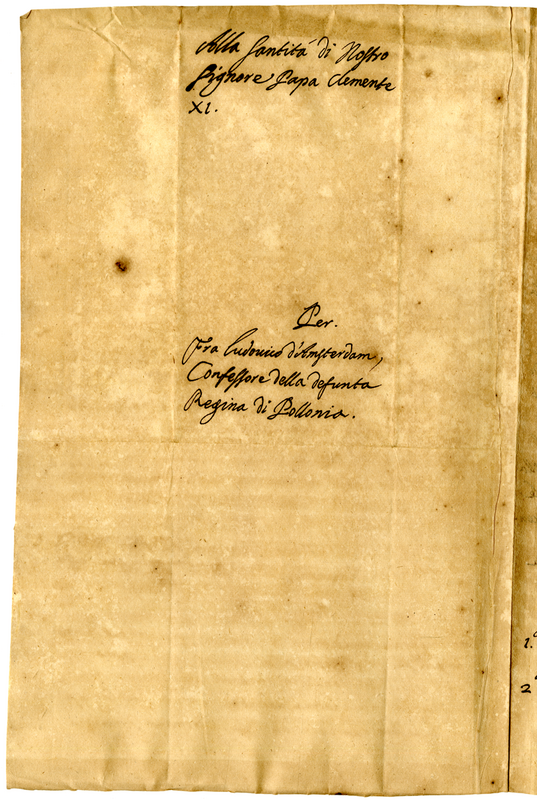 Alla Santitá di Nostro
Signore Papa Clemente
XI.
Per.
Fra Ludovico d'Amsterdam,
Confessore della defunta
Regina di Pollonia.
1.
2